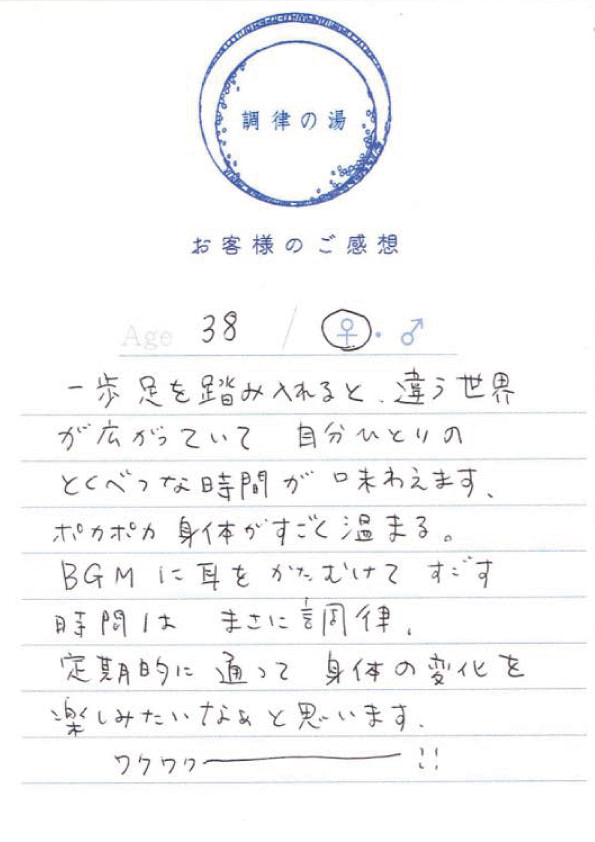 調律の湯
お客様のご感想
Age 38 / ♀・♂
一歩足を踏み入れると、違う世界
が広がっていて 自分ひとりの
とくべつな時間が味わえます、
ポカポカ身体がすごく温まる。
BGMに耳をかたむけてすごす
時間は まさに調律、
定期的に通って身体の変化を
楽しみたいなぁと思います.
ワクワクー!!